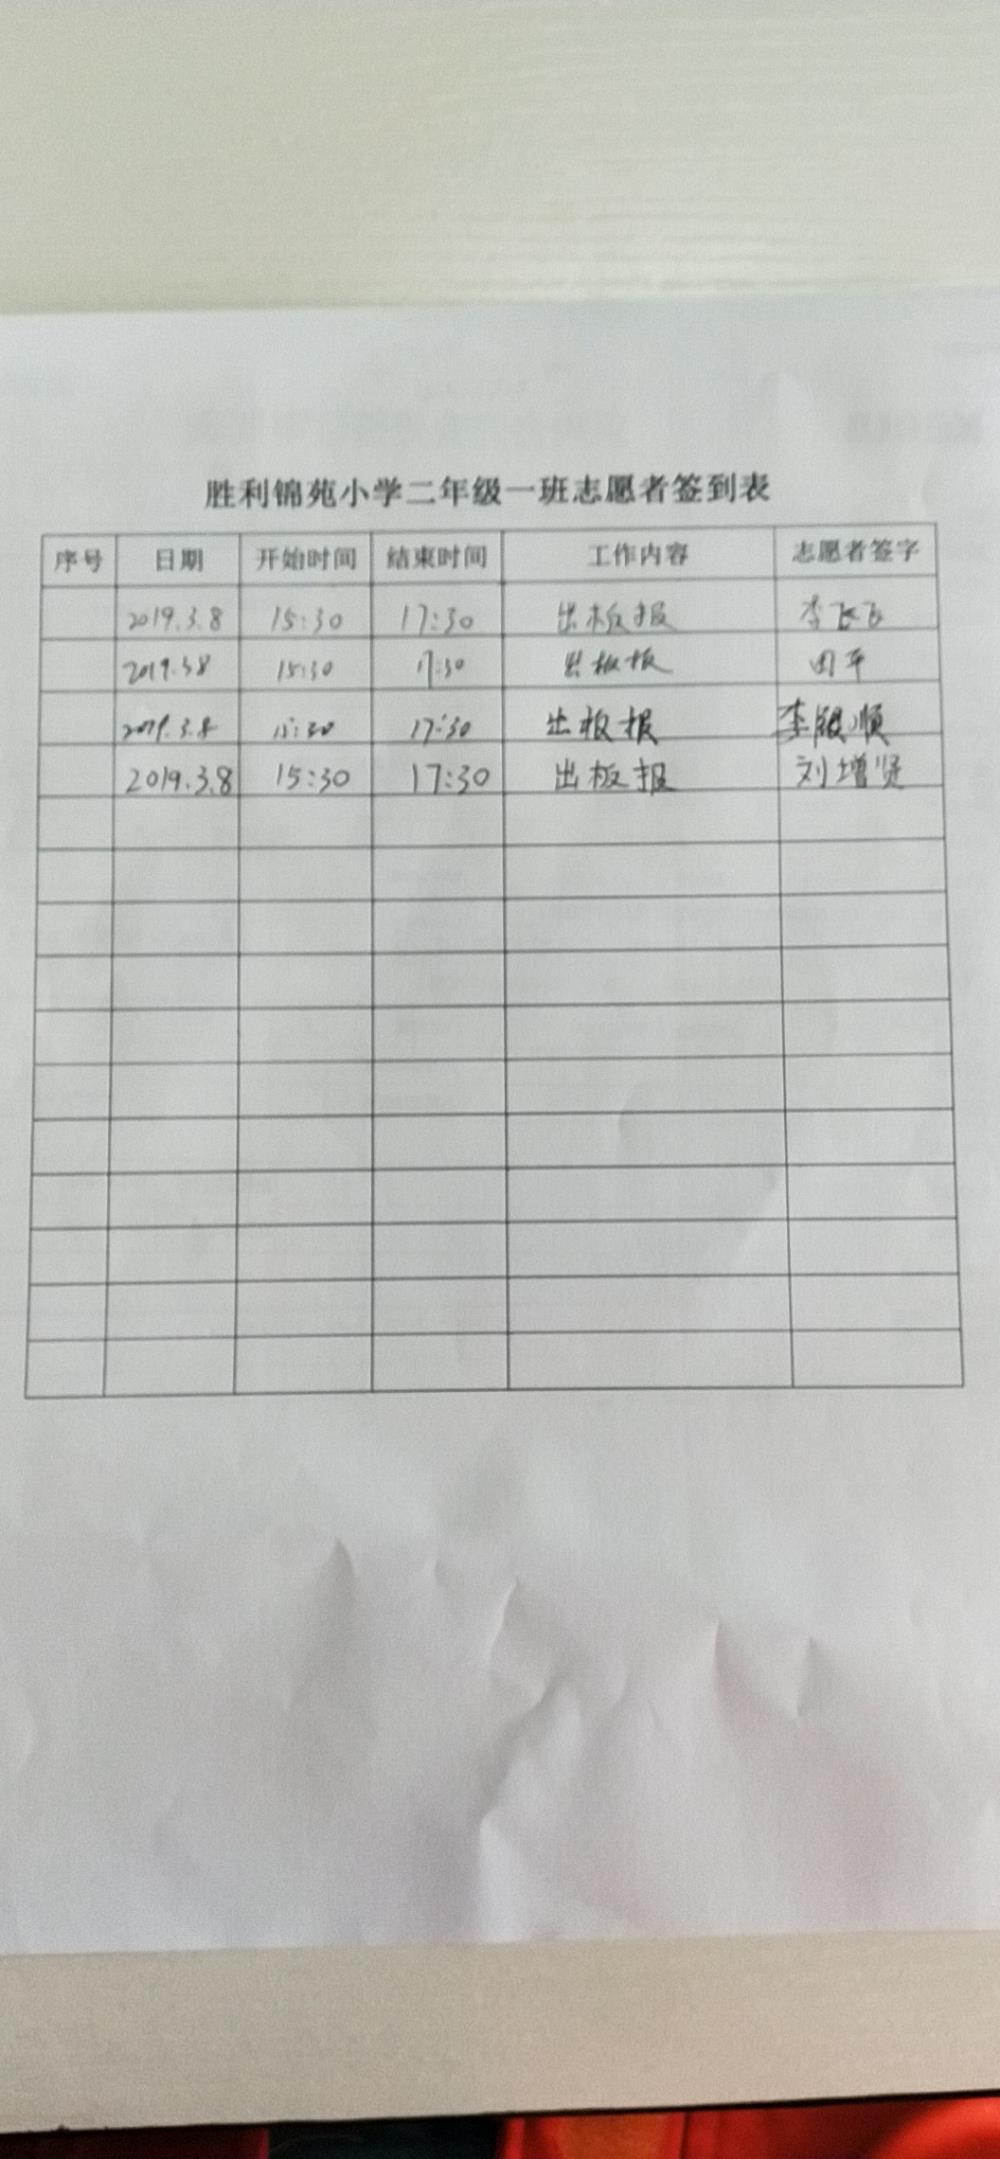 胜利锦苑小学二年级一班志愿者签到表
序号 日期 开始时间 结束时间 工作内容 志愿者签字
2019.3.8 15:30 17:30 出板报 李飞飞
2019.3.8 15:30 17:30 出板报 田平
2019.3.8 15:30 17:30 出板报 李银顺
2019.3.8 15:30 17:30 出板报 刘增贤